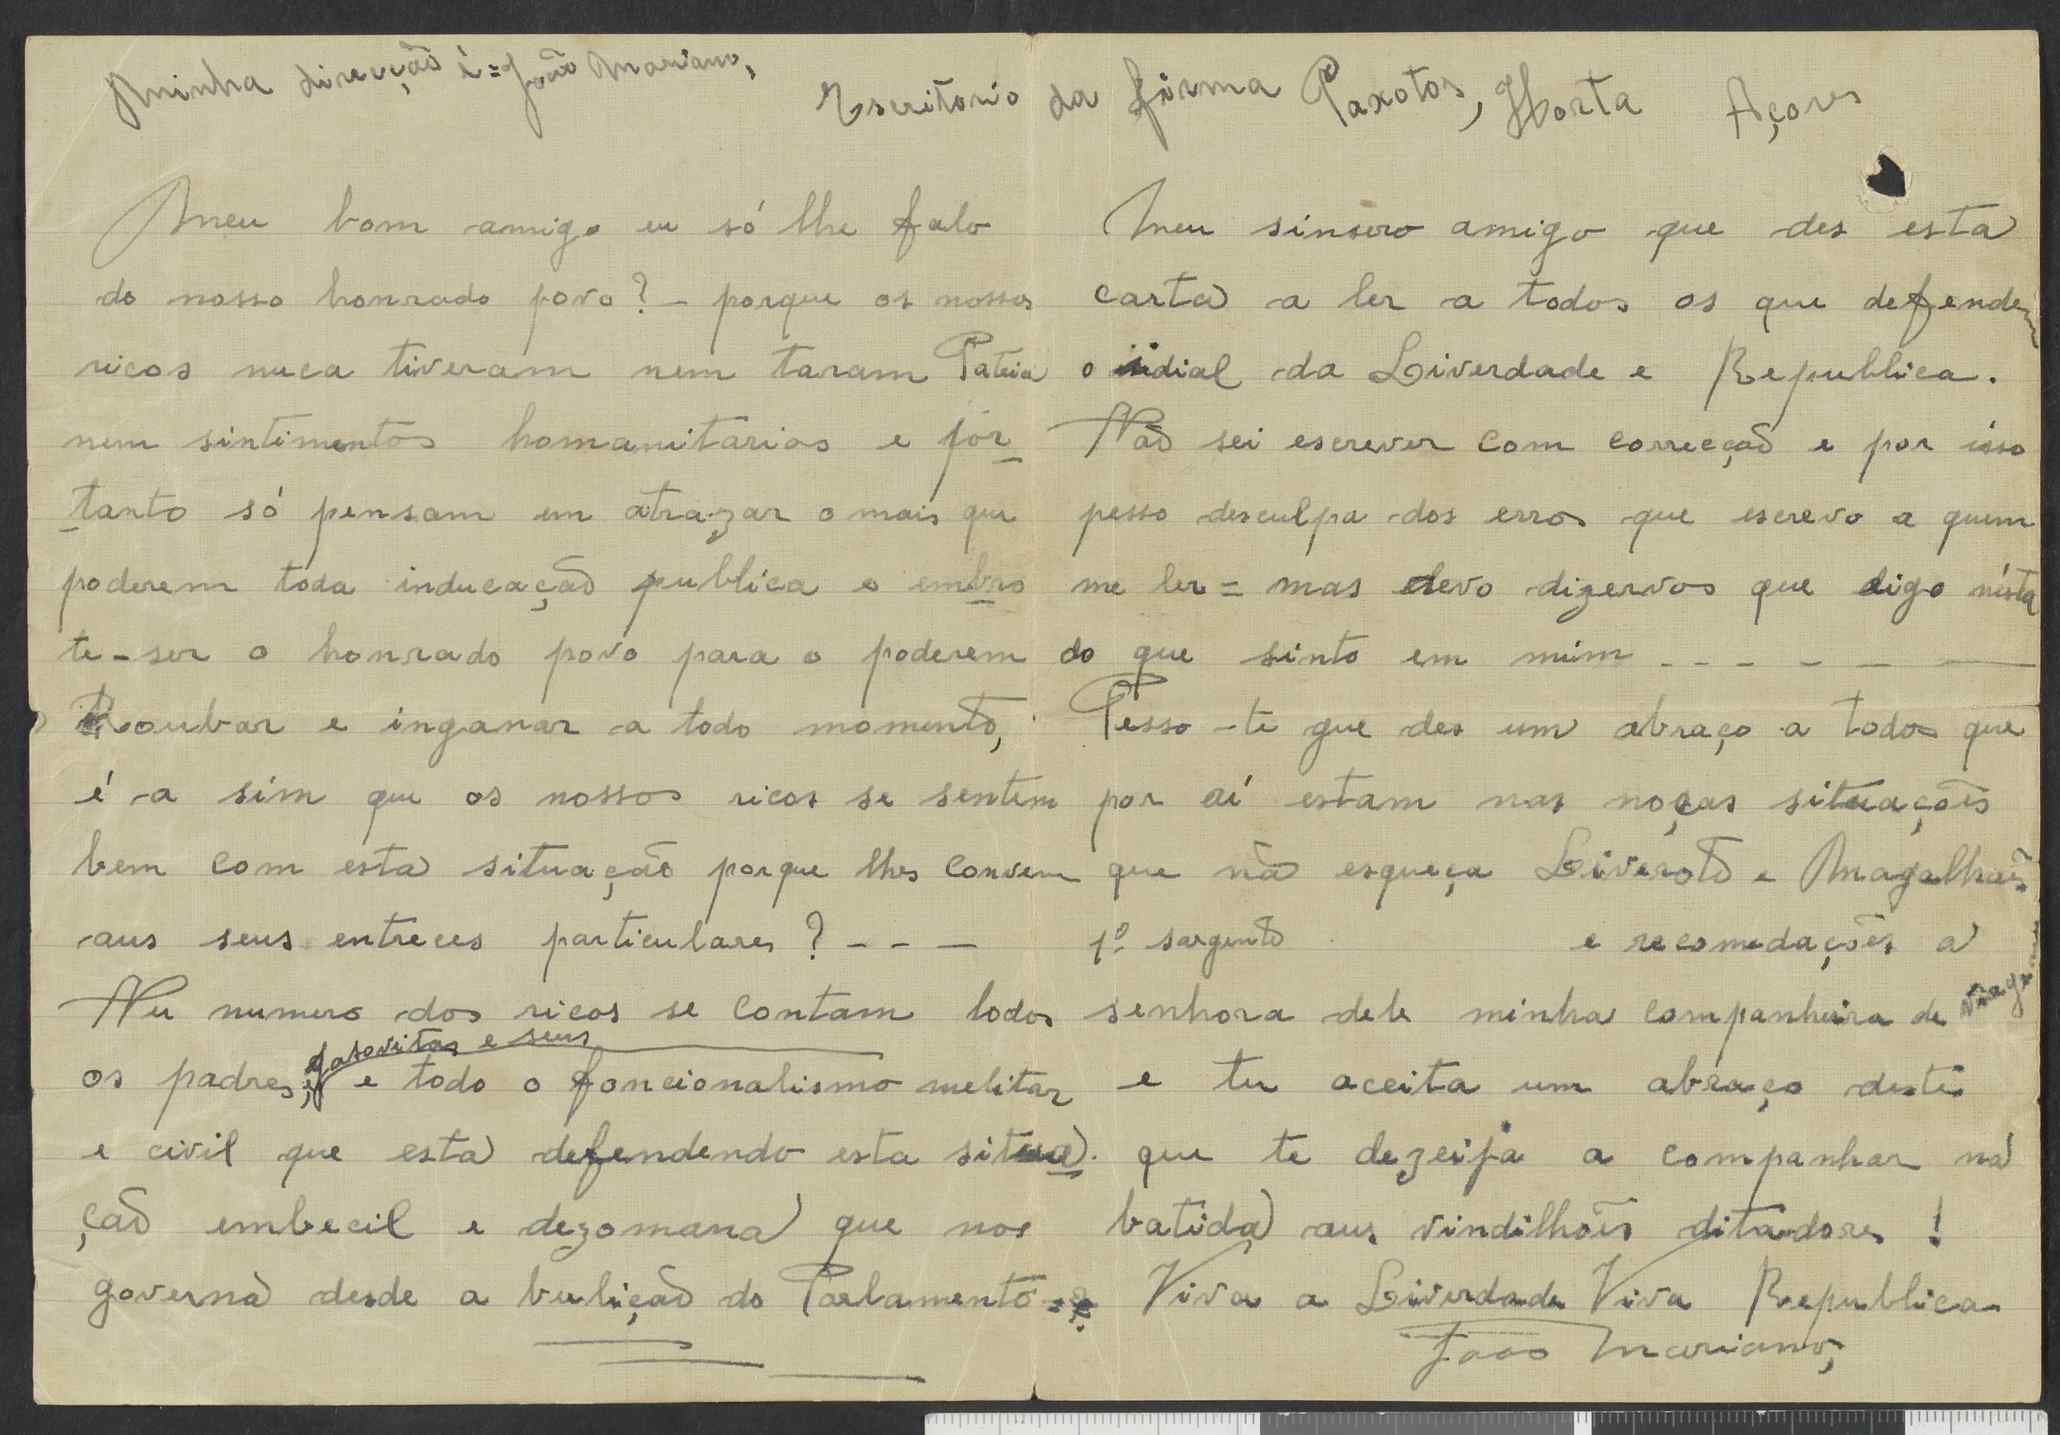 Minha direcção é = João Mariano,
Escritorio da firma Paxotos, Horta Açores
Meu bom amigo eu só lhe falo
do nosso honrado povo? - porque os nossos
ricos nuca tiveram nem taram Patria
nem sintimentos homanitarios e por
tanto só pensam em atrazar o mais que
poderem toda inducação publica e embro
te-ser o honrado povo para o poderem
Roubar e inganar a todo momento,
é a sim que os nossos ricos se sentem
bem com esta situação porque lhes convem
aus seus entreces particulares? - - -
Nu numero dos ricos se contam todos
jasovitas e seus
os padres, e todo o foncionalismo melitar
e civil que esta defendendo esta situa
ção embecil e dezomana que nos
governa desde a bulição do Parlamento
Meu sinsero amigo que des esta
carta a ler a todos os que defendem
o idial da Liverdade e Republica.
Não sei escrever com correcção e por isso
pesso desculpa dos erros que escrevo a quem
me ler = mas devo dizervos que digo nésta
do que sinto em mim - - - - - -
Pesso-te que des um abraço a todos que
por aí estam nas noças situações
que nã esqueça Liverotō e Magalhães
1º sargento e recomedações a
senhora dele minha companheira de viagem
e tu aceita um abraço deste
que te dezeija a companhar na
batida aus vindilhões ditadores!
Viva a Liverdade Viva Republica
João Mariano,